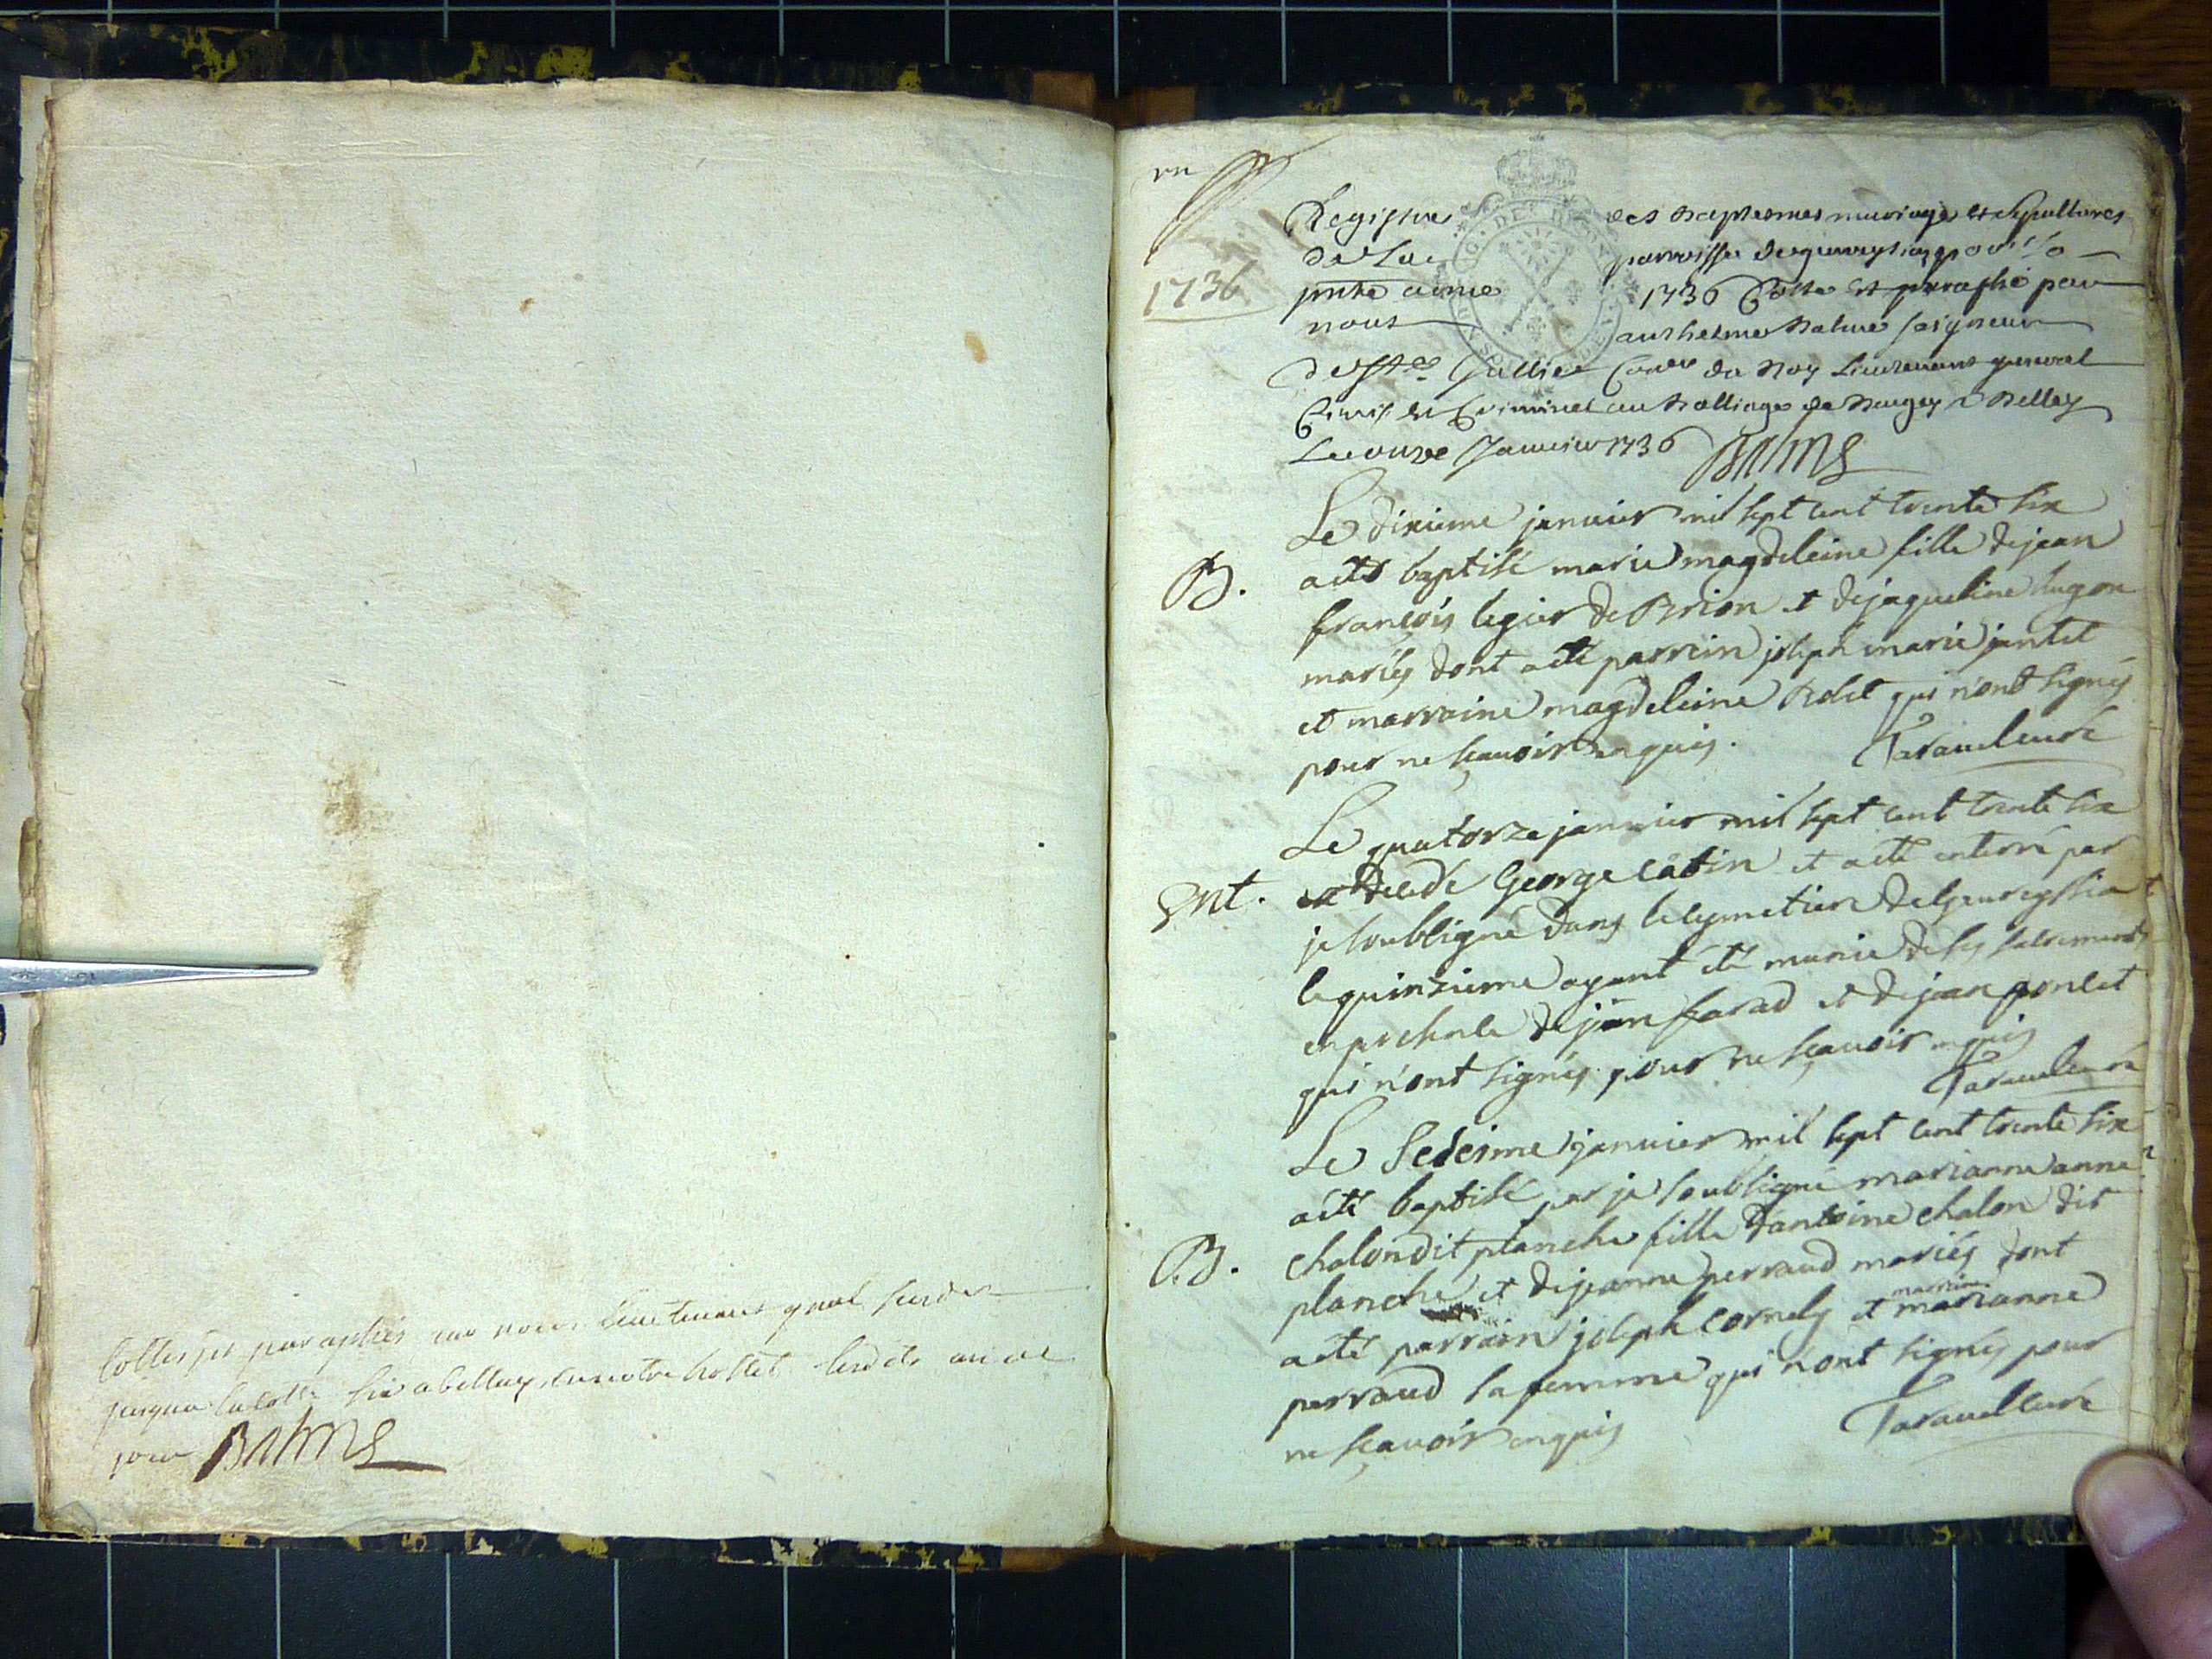 Cottes et paraphés par nous Lieutenant gnal susdit
jusqua la cotte six a belley en notre hostel lesdits an et
jour Balme
1736
Registre des Baptesmes mariages et sepultures
de La parroisse de geureyssiaz pour la
pnte année 1736 Cotte et paraphé par
nous anthelme Balme seigneur
de Ste Jullie Coner du Roy Lieutenant general
Civil et Criminel au Balliage de Bugey a Belley
Le onze Janvier 1736 Balme
Le dixieme janvier mil sept cent trente six
B. a eté baptisé marie magdeleine fille de jean
françois legier de Brion et de jaqueline hugon
mariés dont a eté parrein joseph marie jantet
et marraine magdeleine Robet qui n'ont signés
pour ne sçauoir enquis. Tarauel curé
Le quatorze januier mil sept cent trente six
Ent. est decedé George catin et a eté enterré par
je soubsigné dans le cymetiere de geureyssia
le quinzieme ayant été munie de ses sacrements
en presence de jean farad et de jean ponset
qui n'ont signés pour ne sçauoir enquis
Tarauel curé
Le sedeime januier mil sept cent trente six
a été baptisé par je soubsigné marianne anne
B. chalon dit planche fille d'antoine chalon dit
planche et de jeanne perraud mariés dont
a eté parrain joseph cornely et marraine marianne
perraud sa femme qui n'ont signés pour
ne sçauoir enquis Tarauel curé